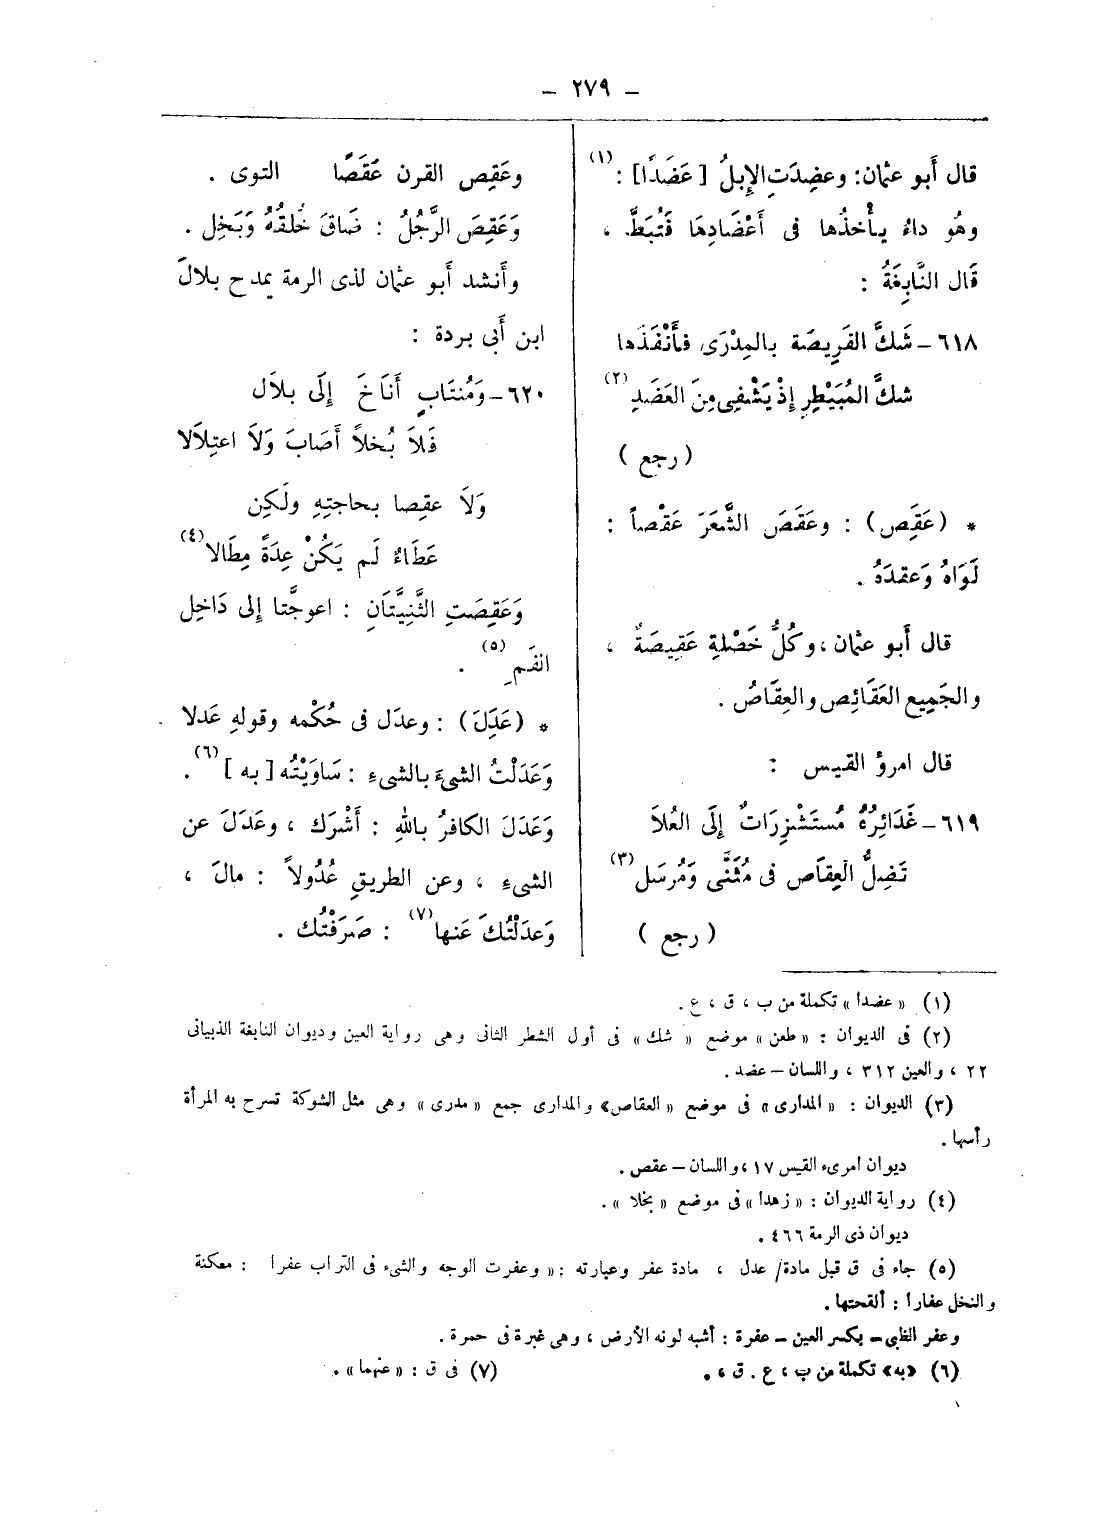 – ٢٧٩ –
قال أَبو عثمان: وعضِدَتِ الإِبلُ [ عَضَدًا] :(١)
وهُو داءٌ يأْخذُها فى أَعْضَادِهَا فَتُبَطُّ ،
قَال النَّابِغَةُ :
٦١٨ – شَكَّ الفَرِيصَة بالمِدْرَى فأَنْفَذَها
شكَّ المُبَيْطِرِ إِذْ يَشْفِى مِنَ العَضَدِ (٢)
( رجع )
* (عَقَِص) : وعَقَصَ الشَّعَرَ عَقْصاً :
لَوَاهُ وَعقدَهُ .
قال أَبو عثمان ، وكُلُّ خَصْلةِ عَقِيصَةٌ ،
والجَمِيع العَقَائِص والعِقَاصُ .
قال امرؤ القيس :
٦١٩ – غَدَائِرُهُ مُستَشْزِرَاتٌ إِلَى العُلاَ
تَضِلُّ العِقَاص فى مُثَنَّى وَمُرسَل (٣)
( رجع )
وعَقِص القرن عَقَصًا التوى .
وَعَقِصَ الرَّجُلُ : ضَاقَ خُلقُهُ وَبَخِل .
وأَنشد أَبو عثمان لذى الرمة يمدح بلالَ
ابن أَبى بردة :
٦٢٠ – وَمُنتَابٍ أَنَاخَ إِلَى بلاَل
فَلاَ بُخلاً أَصَابَ وَلاَ اعتِلاَلا
وَلاَ عقِصا بحاجتِهِ ولَكِن
عَطَاءٌ لَم يَكُنْ عِدَةً مِطَالا (٤)
وَعَقِصَتِ الثَّنِيَّتَانِ : اعوجَّتا إِلى دَاخِل
الفَمِ (٥) .
* (عَدَِلَ) : وعدَل فى حُكْمه وقولهِ عَدلا .
وَعَدَلْتُ الشىءَ بالشىءِ : سَاوَيْتُه [ به ] (٦) .
وَعَدَلَ الكافرُ باللهِ : أَشْرَك ، وعدَلَ عن
الشىءِ ، وعن الطريقِ عُدُولاً : مالَ ،
وَعدَلْتُكَ عَنها (٧) : صَرَفْتُك .
(١) « عضدا » تكملة من ب ، ق ، ع .
(٢) فى الديوان : « طعن » موضع « شك » فى أول الشطر الثانى وهى رواية العين وديوان النابغة الذبيانى
٢٢ ، والعين ٣١٢ ، واللسان – عضد .
(٣) الديوان : « المدارى » فى موضع « العقاص» والمدارى جمع «مدرى » وهى مثل الشوكة تسرح به المرأة
رأسها .
ديوان امرىء القيس ١٧ ، واللسان – عقص .
(٤) رواية الديوان : « زهدا » فى موضع « بخلا » .
ديوان ذى الرمة ٤٦٦ .
(٥) جاء فى ق قبل مادة/ عدل ، مادة عفر وعبارته : « وعفرت الوجه والشىء فى التراب عفرا : معكنة
والنخل عفارا : ألقحتها .
وعفر الظبى – بكسر العين – عفرة : أشبه لونه الأرض ، وهى غبرة فى حمرة .
(٦) «به» تكملة من ب ، ع . ق ، .
(٧) فى ق : « عنهما » .